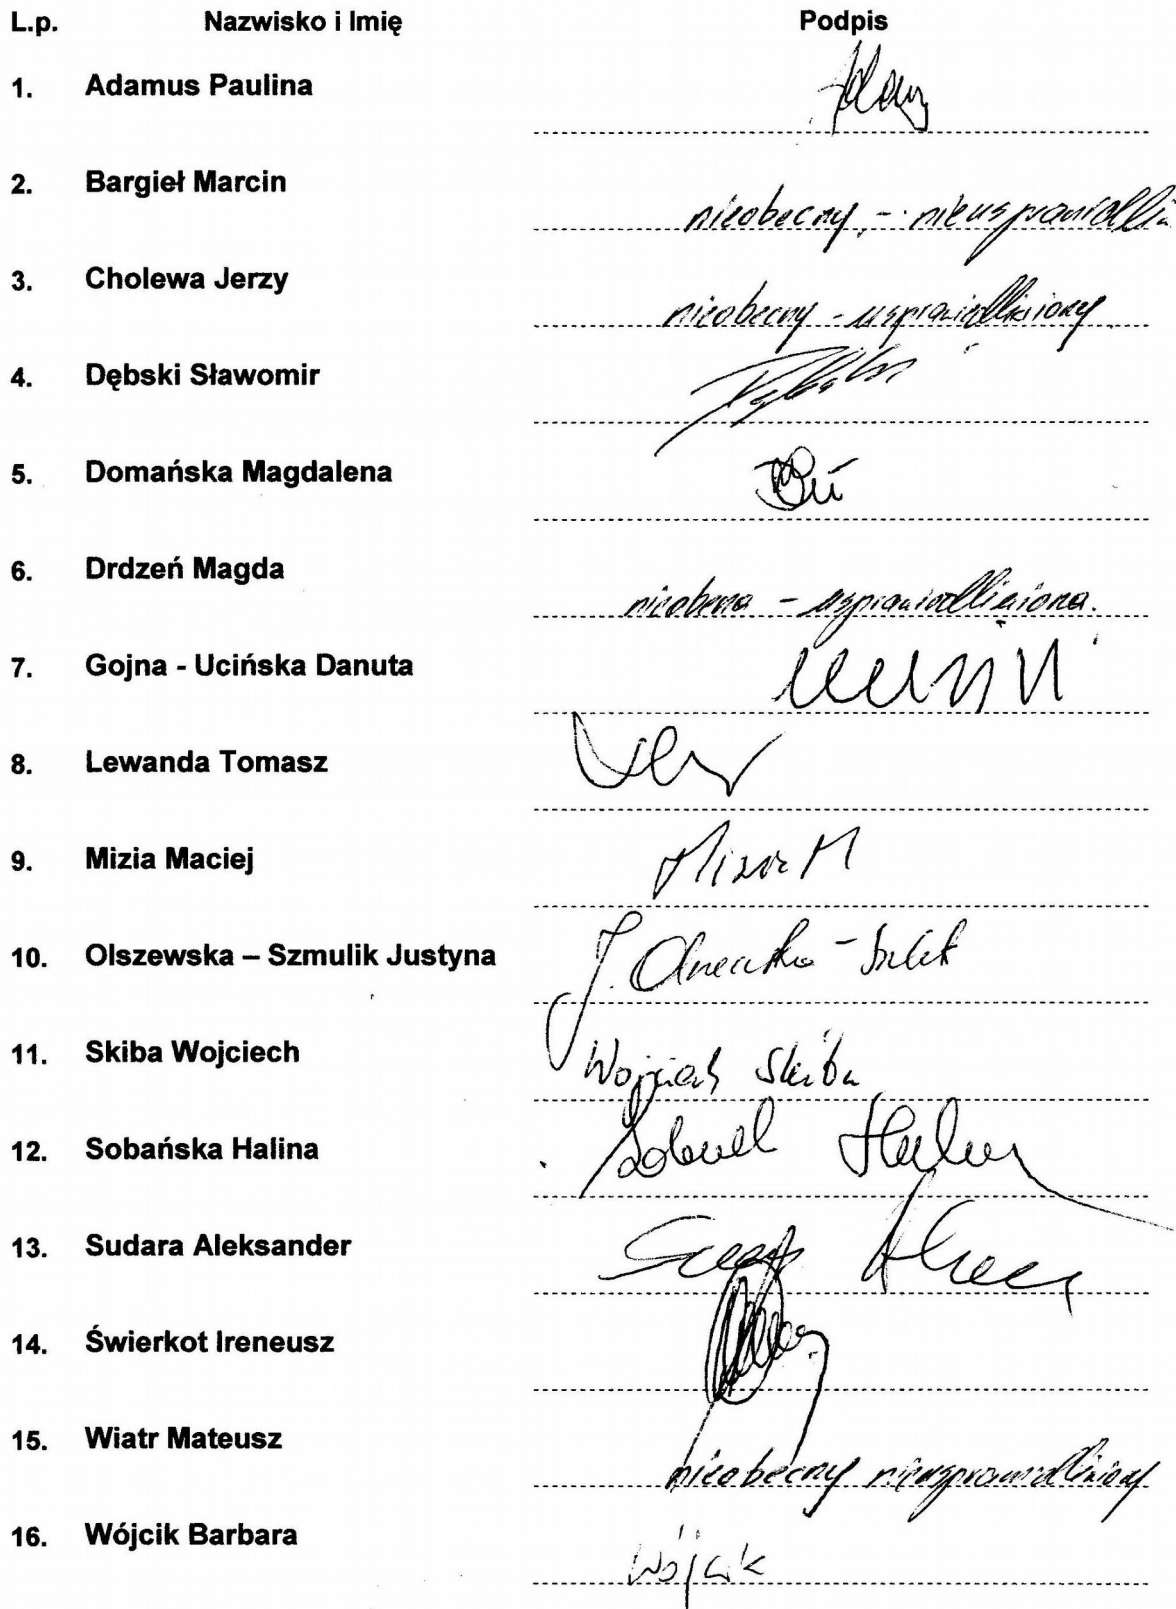 L.p. Nazwisko i Imię Podpis
1. Adamus Paulina
2. Bargieł Marcin nieobecny -
3. Cholewa Jerzy nieobecny - usprawiedliwiony
4. Dębski Sławomir
5. Domańska Magdalena
6. Drdzeń Magda nieobecna - usprawiedliwiona.
7. Gojna - Ucińska Danuta
8. Lewanda Tomasz
9. Mizia Maciej Mizia M
10. Olszewska – Szmulik Justyna J.
11. Skiba Wojciech Wojciech Skiba
12. Sobańska Halina
13. Sudara Aleksander
14. Świerkot Ireneusz
15. Wiatr Mateusz nieobecny nieusprawiedliwiony
16. Wójcik Barbara Wójcik